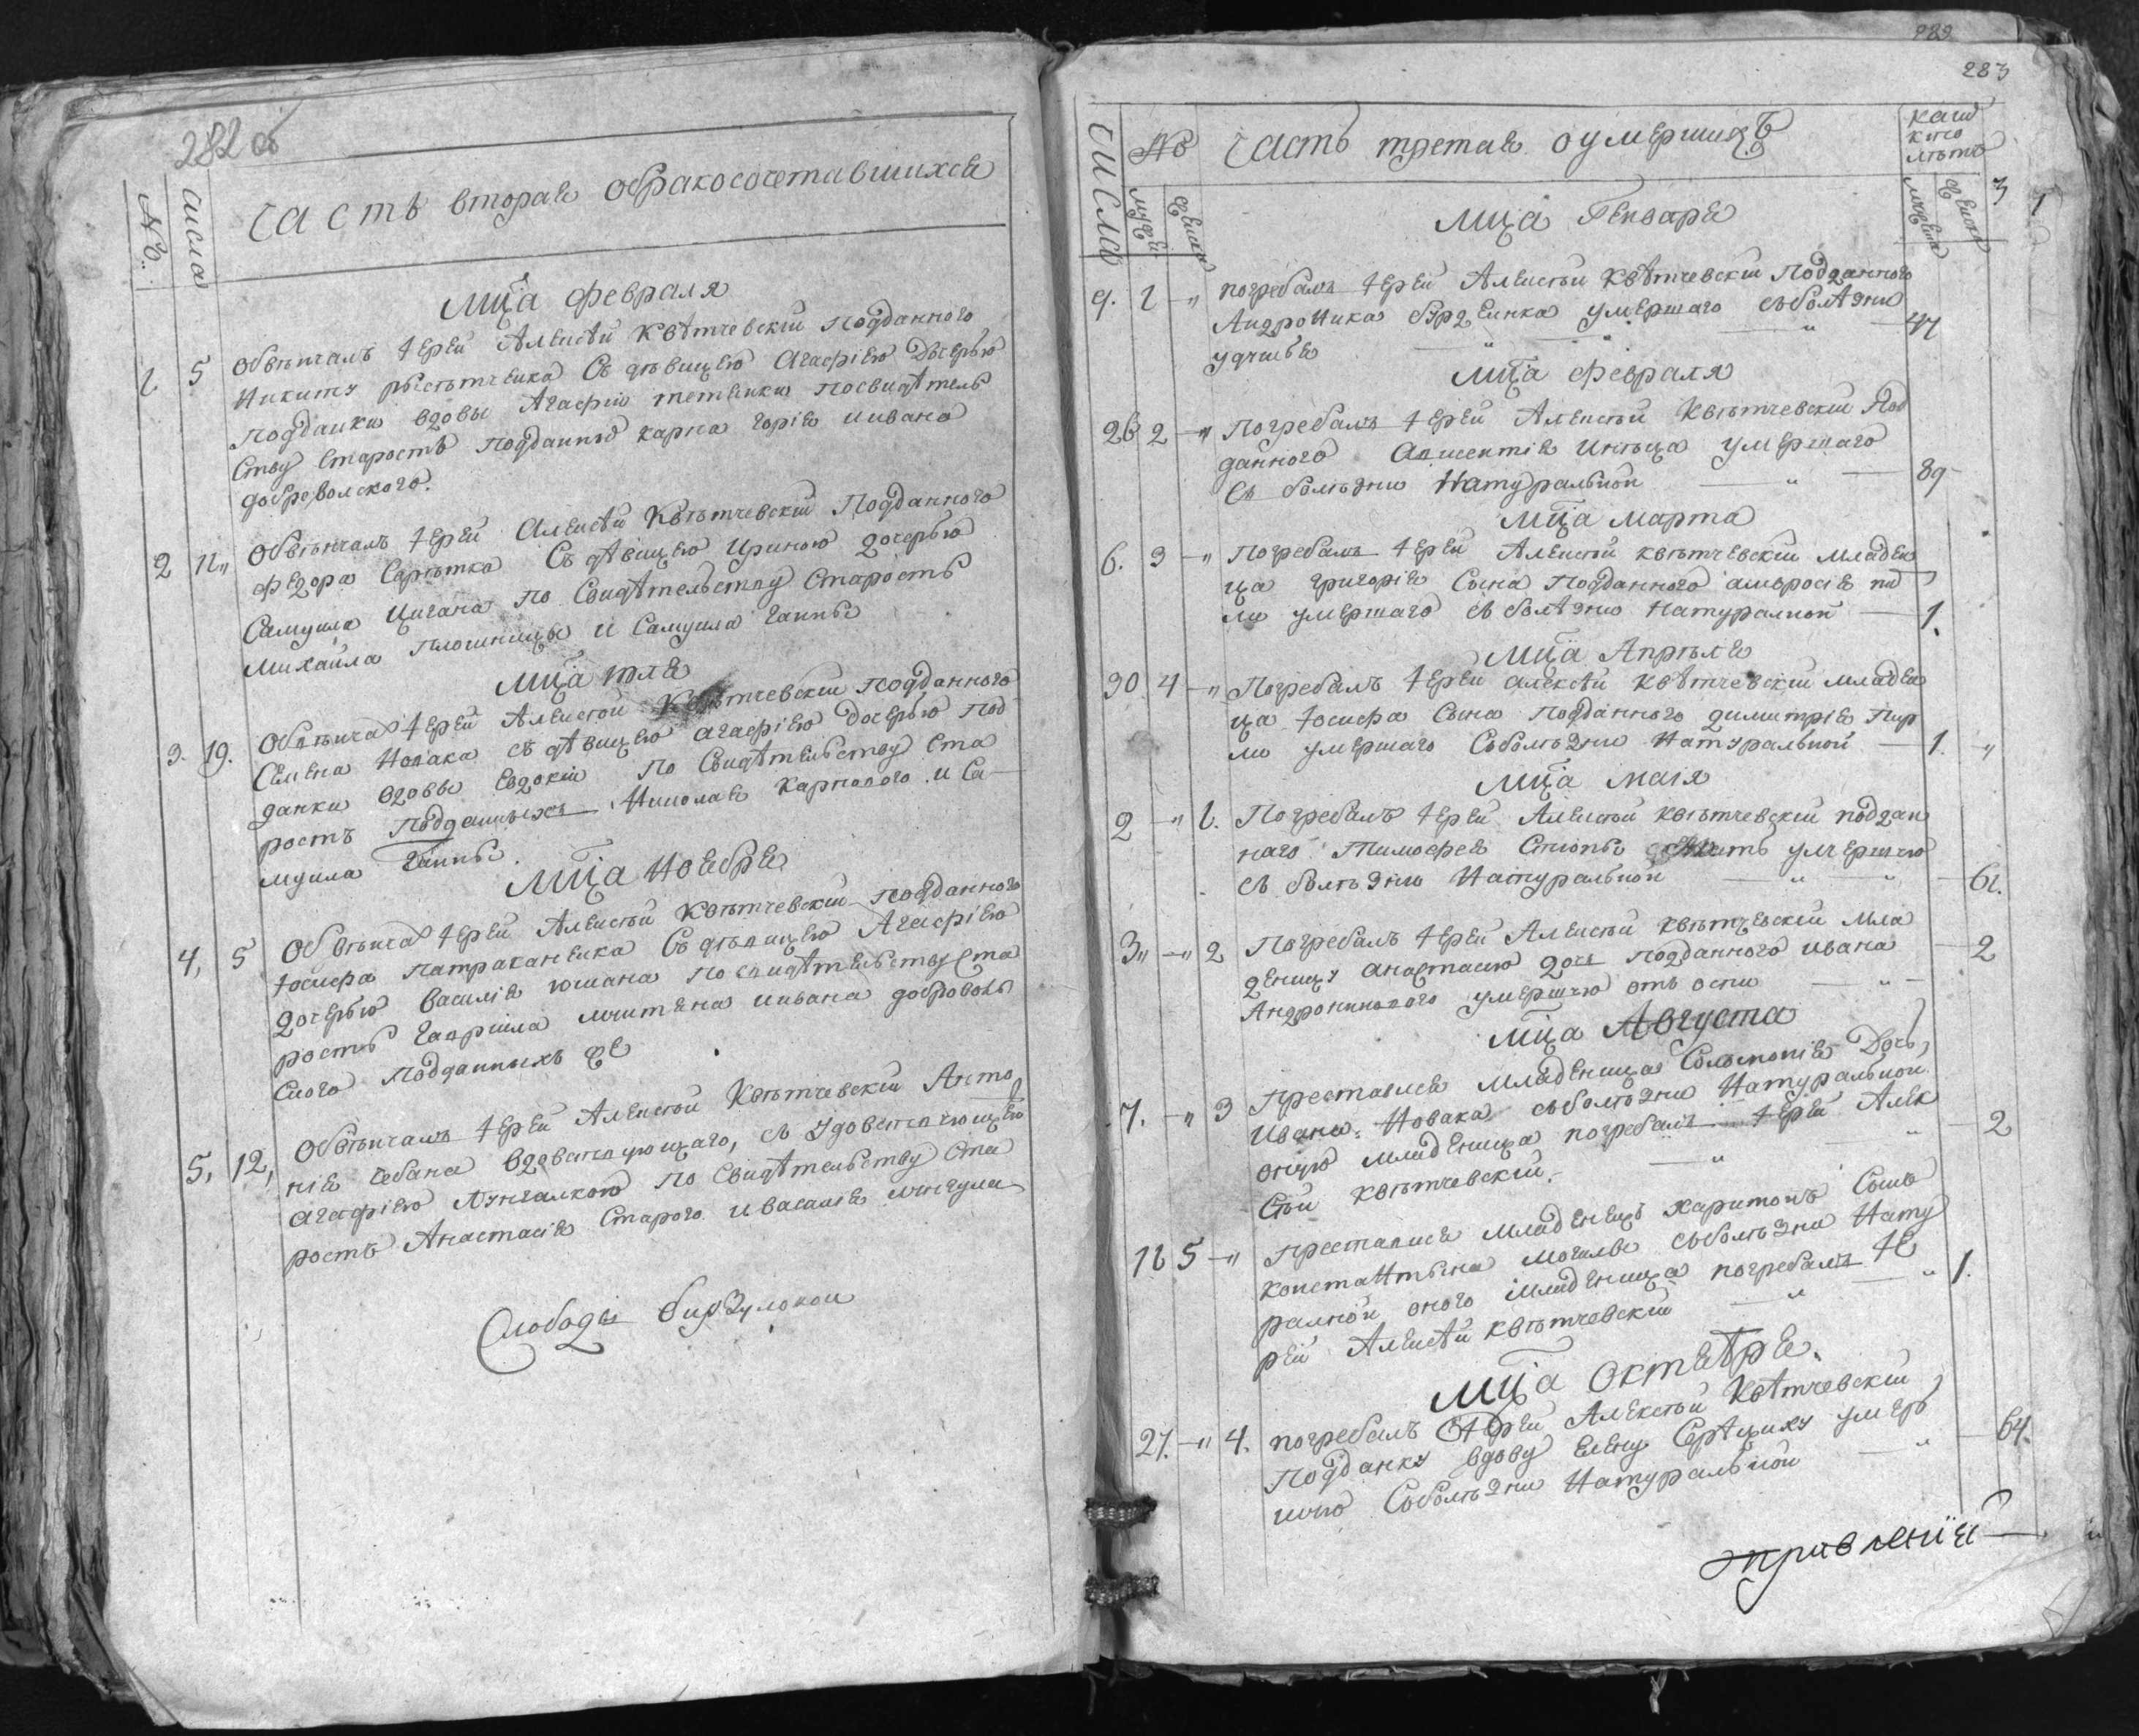 282 об
№
Числа
Часть вторая о бракосочетавшихся
Мца февраля
1 5 Обвѣнчалъ Іерей Алексѣй Квѣтчевскій подданного
Никиту Съ дѣвицею Агафіею Дочерью
подданки вдовы Агафіи посвидѣтель
ству Старостъ подданныхъ карпа горіе и ивана
добровольского.
2 11 Обвѣнчалъ Іерей Алексѣй Квѣтчевскій Подданного
Федора Сърѣтка Съ дѣвицею Ириною дочерью
Самуила Цигана по Свидѣтельству Старостъ
Михайла Плошницы и Самуила Ганны
Мца
3. 19. Обвѣнча Іерей Алексѣй Квѣтчевскій подданного
Семена Новака съ дѣвицею агафіею Дочерью под
данки вдовы Евдокіи по Свидѣтельству Ста
ростъ Подданныхъ Николая Карпового и Са
муила Ганны.
Мца Ноября
4, 5 Обвѣнча Іерей Алексѣй Квѣтчевскій подданного
Іосифа Патраканенка Съ дѣвицею Агафіею
дочерью Василія юшана по свидѣтельству Ста
ростъ Гавріила и ивана доброволь
ского подданныхъ же
5, 12, Обвѣнчалъ Іерей Алексѣй Квѣтчевскій Анто
нія Чебана вдовствующаго, съ удовствующею
Агафіею по Свидѣтельству Ста
ростъ Анастасія Старого и василія
Слободы
282
283
Числа
№
Часть третая о умершихъ
каш
кто
лѣтъ
мужей
женска
мужеска
женска
3
1
Мца Генваря
9. 1 -" погребалъ Іерей Алексѣй Квѣтчевскій Подданного
Андроника умершаго съболѣзни
" " 47
Мца февраля
26 2 -" Погребалъ Іерей Алексѣй Квѣтчевскій Под
данного умершаго
съ болѣзни Натуральной " 89
Мца Марта
6. 3 -" Погребалъ Іерей Алексѣй квѣтчевскій младен
ца григорія Сына Подданного амвросія пи
ли умершаго съ болѣзни Натуралной 1.
Мца Апрѣля
30 4 -" Погребалъ Іерей алексѣй Квѣтчевскій младен
ца Іосифа Сына Подданного димитрія
ли умершаго Съболѣзни Натуральной 1. "
Мца Маія
2 -" 1. Погребалъ Іерей Алексѣй Квѣтчевскій поддан
наго Тимофея умершею
съ болѣзни Натуральной " " 61.
3" -" 2 Погребалъ Іерей Алексѣй квѣтчевскій Мла
деницу анастасію дочь подданного ивана 2
Андрониковаго умершею отъ оспи "
Мца Августа
7. -" 3 Преставися Младеница Соломонія Дочь
Ивана Новака съболѣзни Натуральной
оную младеница погребалъ Іерей Алек
сѣй квѣтчевскій. " " 2
16 5 -" Преставися Младенецъ харитонъ Сынъ
константына могилы съболѣзни Нату
ралной оного Младеница погребалъ Іе
рей Алексѣй квѣтчевскій " " 1.
Мца Октября.
27. -" 4. погребалъ Іерей Алексѣй Квѣтчевскій
Подданку вдову Елену умер
шую Съболѣзни Натуральной " 64.